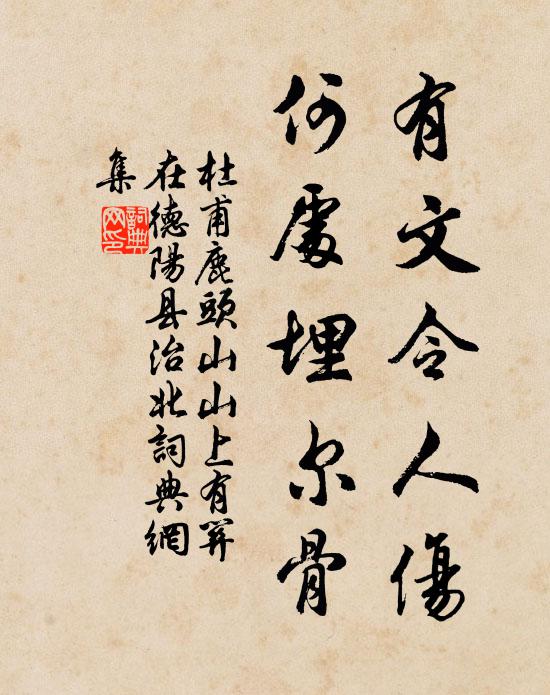 有文令人傷
何處埋尔骨
杜甫鹿頭山山上有関
在德陽县治北詞典網
集
詞典網印